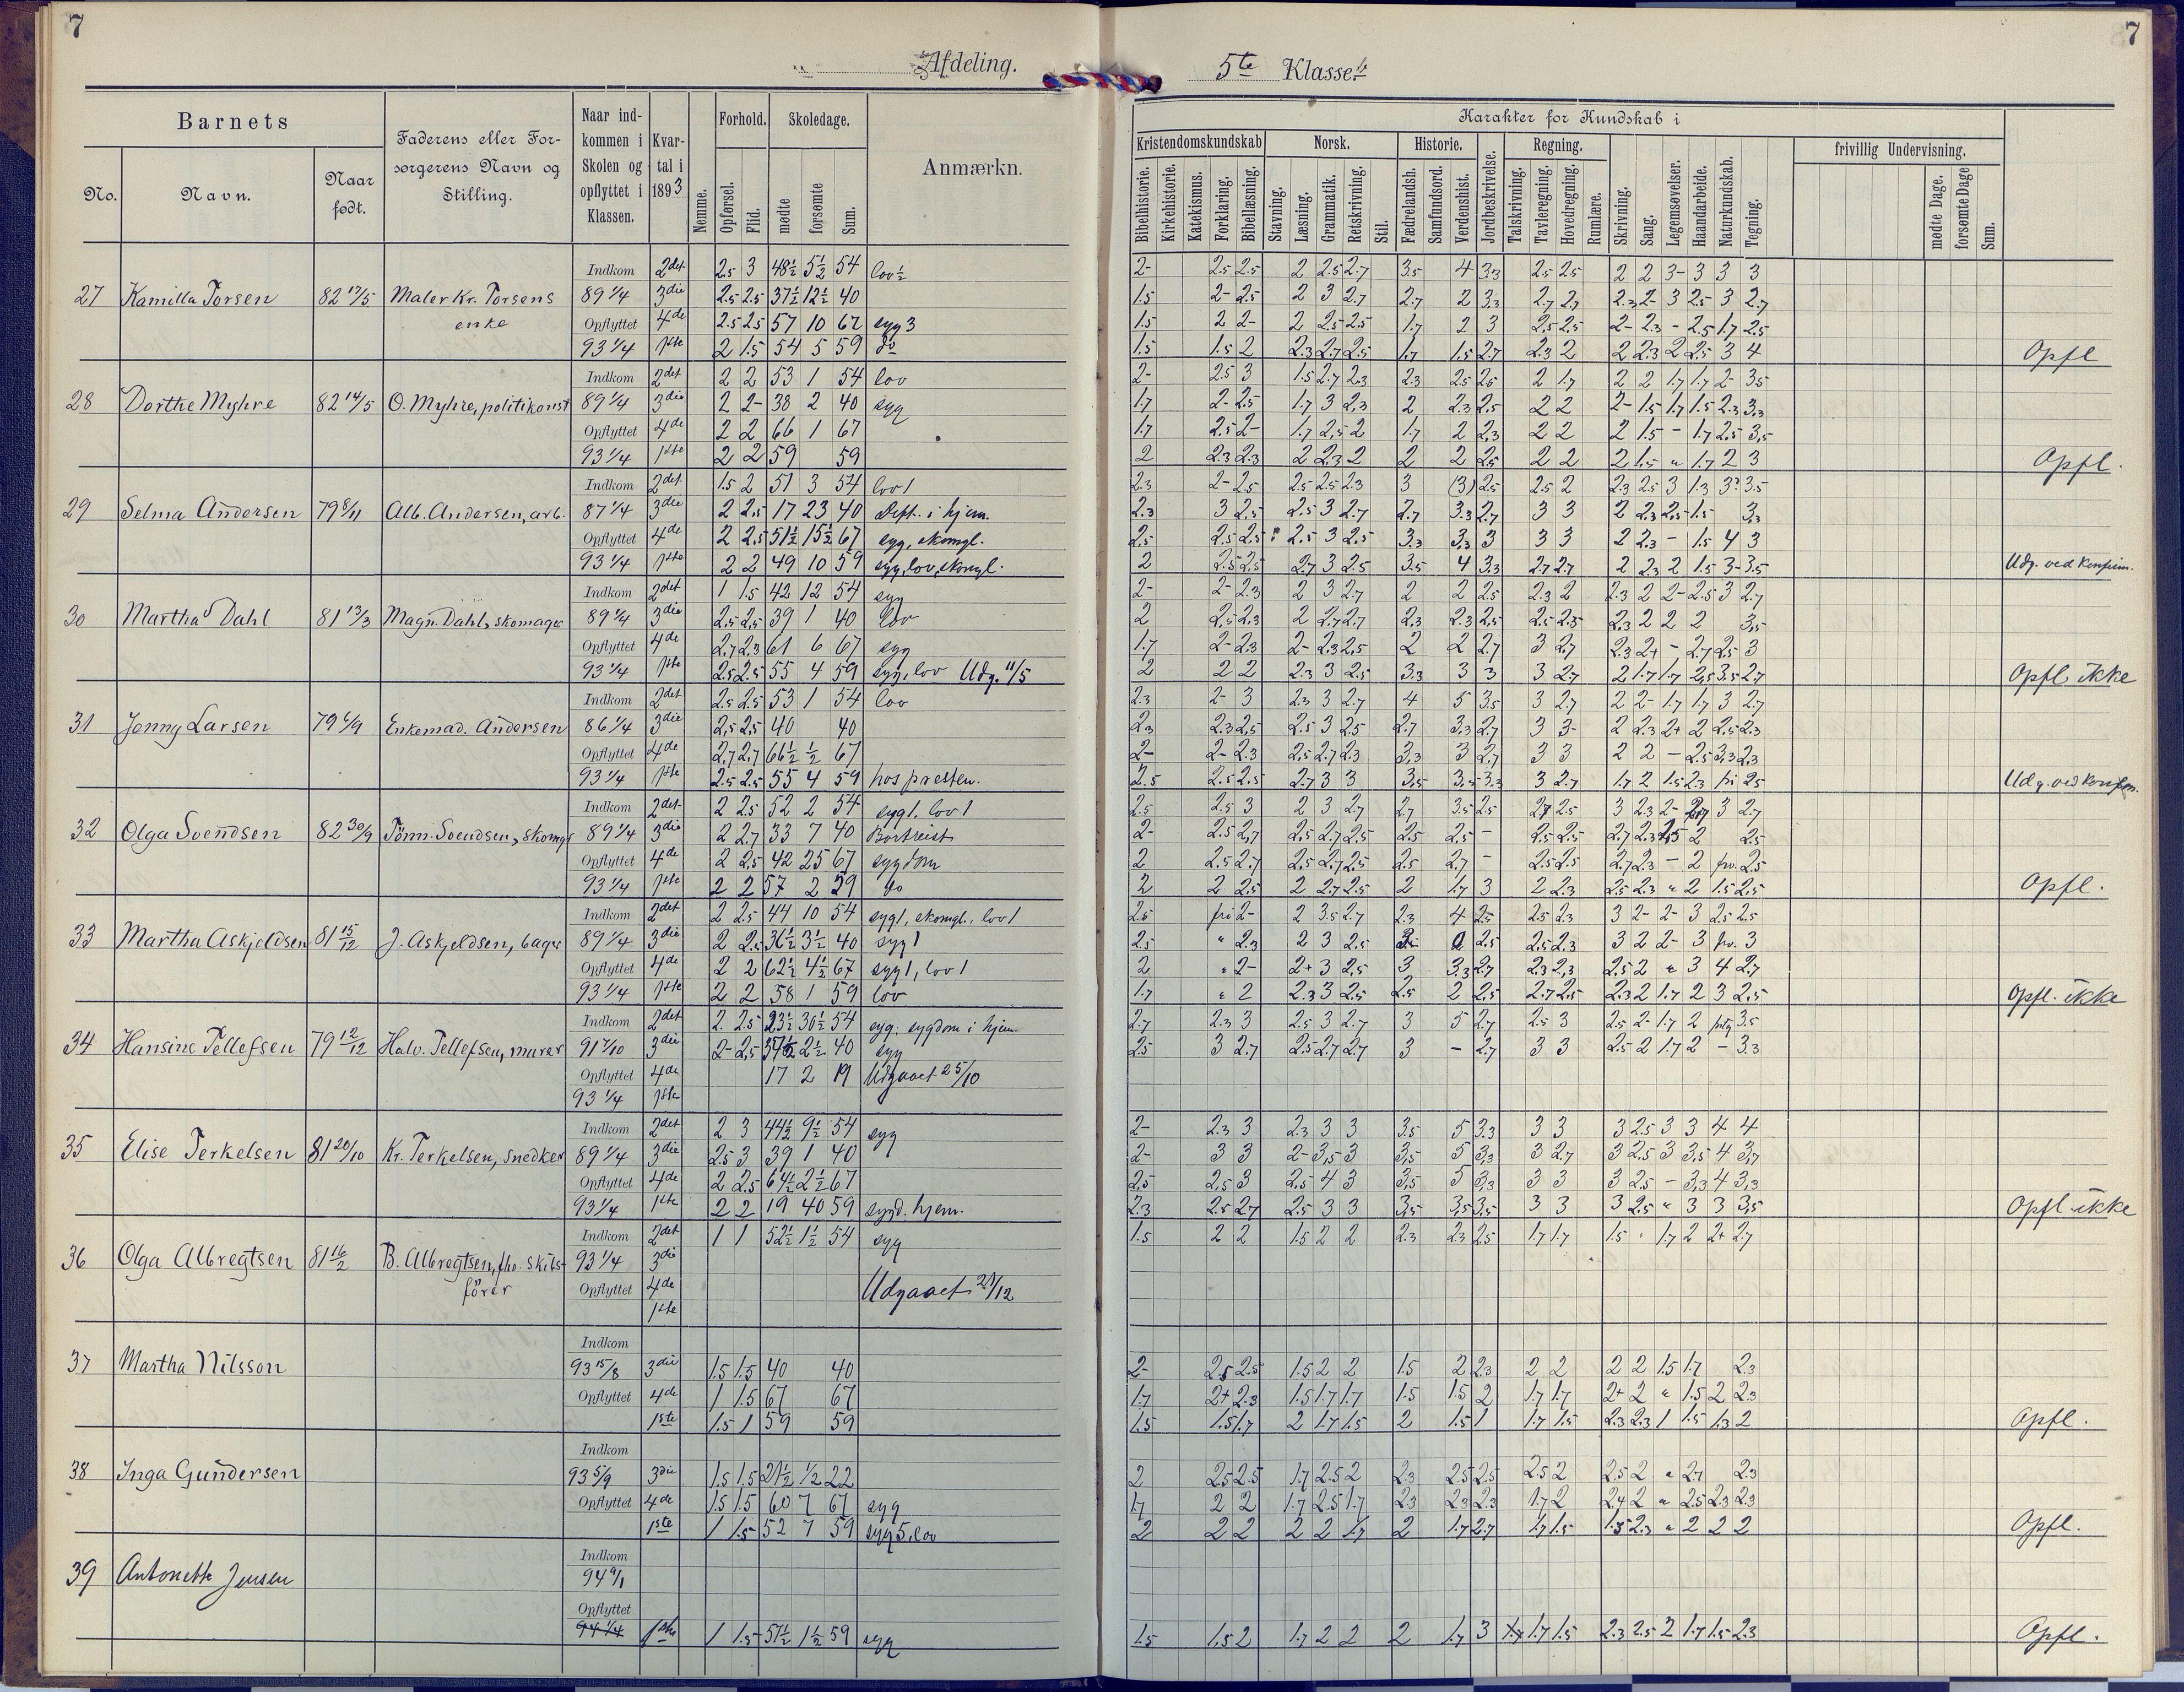 7
Afdeling.
Barnets
No.
Navn.
Naar født.
Faderens eller Forsørgerens Navn og Stilling.
Naar indkommen i Skolen og opflyttet i Klassen.
Kvartal i 1893
Nemme.
Forhold.
Opførsel.
Flid.
Skoledage.
mødte
forsømte
Sum.
Anmærkn.
27 Kamilla Torsen 82 17/5 Maler Kr. Torsens enke
Indkom 2det 2.5 3 48½ 5½ 54 lov ½
89 1/4 3die 2.5 2.5 37½ 12½ 40
Opflyttet 4de 2.5 2.5 57 10 67 syg 3
93 1/4 1ste 2 1.5 54 5 59 do
28 Dorthe Myhre 82 14/5 O. Myhre, politikonst
Indkom 2det 2 2 53 1 54 lov
89 1/4 3die 2 2- 38 2 40 syg
Opflyttet 4de 2 2 66 1 67
93 1/4 1ste 2 2 59 59
29 Selma Andersen 79 8/11 Alb. Andersen, arb.
Indkom 2det 1.5 2 51 3 54 lov 1
87 1/4 3die 2 2.5 17 23 40 Dift. i hjem.
Opflyttet 4de 2 2.5 51½ 15½ 67 syg, skomgl.
93 1/4 1ste 2 2 49 10 59 syg, lov, skomgl.
30 Martha Dahl 81 13/3 Magn. Dahl, skomager
Indkom 2det 1 1.5 42 12 54 syg
89 1/4 3die 2.5 2.5 39 1 40 lov
Opflyttet 4de 2.7 2.3 61 6 67 syg
93 1/4 1ste 2.5 2.5 55 4 59 syg, lov Udg. 11/5
31 Jenny Larsen 79 /9 Enkemad. Andersen
Indkom 2det 2.5 2.5 53 1 54 lov
86 1/4 3die 2,5 2,5 40 40
Opflyttet 4de 2,7 2,7 66½ ½ 67
93 1/4 1ste 2.5 2.5 55 4 59 hos presten.
32 Olga Svendsen 82 30/9 Tönn. Svendsen, skomgr
Indkom 2det 2 2.5 52 2 54 syg 1. lov 1
89 1/4 3die 2 2.7 33 7 40 Bortreist
Opflyttet 4de 2 2.5 42 25 67 sygdom
93 1/4 1ste 2 2 57 2 59 do
33 Martha Askjeldsen 81 15/12 J. Askjeldsen, bager
Indkom 2det 2 2.5 44 10 54 syg 1, skomgl., lov 1
89 1/4 3die 2 2.5 36½ 3½ 40 syg 1
Opflyttet 4de 2 2 62½ 4½ 67 syg 1, lov 1
93 1/4 1ste 2 2 58 1 59 lov
34 Hansine Tellefsen 79 12/12 Halv. Tellefsen, murer
Indkom 2det 2. 2.5 23½ 30½ 54 syg. sygdom i hjem.
91 /10 3die 2- 2,5 37½ 2½ 40 syg
Opflyttet 4de 17 2 19 Udgaaet 25/10
93 1/4 1ste
35 Elise Terkelsen 81 20/10 Kr. Terkelsen, snedker
Indkom 2det 2 3 44½ 9½ 54 syg
89 1/4 3die 2.5 3 39 1 40
Opflyttet 4de 2 2.5 64½ 2½ 67
93 1/4 1ste 2 2 19 40 59 sygd. hjem.
36 Olga Albregtsen 81 16/2 B. Albregtsen, fhv. skibsfører
Indkom 2det 1 1 52½ 1½ 54 syg
93 1/4 3die
Opflyttet 4de Udgaaet 21/12
1ste
37 Martha Nilsson
Indkom
93 15/8 3die 1.5 1.5 40 40
Opflyttet 4de 1 1.5 67 67
1ste 1.5 1 59 59
38 Inga Gundersen
Indkom
93 5/9 3die 1.5 1.5 21½ ½ 22
Opflyttet 4de 1.5 1.5 60 7 67 syg
1ste 1 1.5 52 7 59 syg 5, lov
39 Antonette Jensen
Indkom
94 9/1
Opflyttet
94 1/4 1ste 1 1.5 57½ 1½ 59 syg
7
5te Klasse b
Karakter for Kundskab i
Kristendomskundskab
Bibelhistorie.
Kirkehistorie.
Katekismus.
Forklaring.
Bibellæsning.
Norsk.
Stavning.
Læsning.
Grammatik.
Retskrivning.
Stil.
Historie.
Fædrelandsh.
Samfundsord.
Verdenshist.
Jordbeskrivelse.
Regning.
Talskrivning.
Tavleregning.
Hovedregning.
Rumlære.
Skrivning.
Sang.
Legemsøvelser.
Haandarbeide.
Naturkundskab.
Tegning.
frivillig Undervisning.
mødte Dage.
forsømte Dage
Sum.
2- 2.5 2.5 2 2.5 2.7 3.5 4 3.3 2.5 2.5 2 2 3- 3 3 3
1.5 2- 2.5 2 3 2.7 2.7 2 3.3 2.7 2.7 2.3 2- 3 2.5 3 2.7
1.5 2 2- 2 2.5 2.5 1.7 2 3 2.5 2.5 2- 2.3 - 2.5 1.7 2.5
1.5 1.5 2 2.3 2.7 2.5 1.7 1.5 2.7 2.3 2 2 2.3 2 2.5 3 4 Opfl
2- 2.5 3 1.5 2.7 2.3 2.3 2.5 2.5 2 1.7 2 2 1.7 1.7 2- 3.5
1.7 2- 2.5 1.7 3 2,3 2 2.3 2,5 2 2 2- 1.5 1.7 1.5 2.3 3,3
1.7 2.5 2- 1.7 2,5 2 1.7 2 2,3 2 2 2 1.5 - 1.7 2,5 3,5
2 2.3 2.3 2 2.3 2 2 2 2.5 2 2 2 1.5 " 1.7 2 3 Opfl.
2.3 2- 2.5 2.5 2.5 2.3 3 (3) 2.5 2.5 2 2.3 2.5 3 1.3 3? 3.5
2.3 3 2,5 2.5 3 2.7 2.7 3.3 2.7 3 3 2 2.3 2.5 1.5 3,3
2.5 2.5 2.5 2.5 3 2.5 3.3 3.3 3 3 3 2 2.3 - 1.5 4 3
2 2.5 2.5 2.7 3 2.5 3.5 4 3.3 2.7 2.7 2 2.3 2 1.5 3- 3.5 Udg. ved konfirm.
2- 2- 2.3 2 3 2.7 2 2 2.5 2.3 2 2.3 2 2- 2.5 3 2.7
2 2,5 2,3 2 2.7 2.7 2.3 2.3 2,5 2.5 2.5 2,3 2 2 2 3,5
1.7 2- 2.3 2- 2.3 2,5 2 2 2.7 3 2.7 2.3 2+ - 2.7 2.5 3
2 2 2 2.3 3 2.5 3.3 3 3 3 2.7 2 1.7 1.7 2,5 3.5 2.7 Opfl ikke
2.3 2- 3 2.3 3 2.7 4 5 3.5 3 2.7 2 2- 1.7 1.7 3 2.7
2.3 2.3 2,5 2.5 3 2.5 2.7 3,3 2.7 3 3- 2 2.3 2+ 2 2.5 2.3
2- 2- 2.3 2,5 2.7 2.3 3,3 3 2.7 3 3 2 2 - 2.5 3,3 2,3
2.5 2.5 2.5 2.7 3 3 3,5 3.5 3.3 3 2.7 1.7 2 1.5 2.3 fri 2.5 Udg. ved konfirm.
2.5 2.5 3 2 3 2.7 2.7 3.5 2.5 2.7 2.5 3 2.3 2- 2.7 3 2.7
2- 2.5 2,7 2,5 2.7 2,5 2.5 2.5 - 2.5 2.5 2.7 2.3 2.5 2 2.5
2 2.5 2.7 2,5 2,7 2,5 2.5 2.7 - 2.5 2.5 2.7 2.3 - 2 frv. 2.5
2 2 2.5 2 2.7 2.5 2 1.7 3 2 2.3 2.5 2.3 " 2 1.5 2.5 Opfl.
2.5 fri 2- 2 3.5 2.7 2.3 4 2.5 2.5 2.3 3 2- 2- 3 2.5 2.5
2.5 " 2.3 2 3 2.5 2.5 2.5 2.3 3 2 2- 3 frv. 3
2 " 2- 2+ 3 2.5 3 3.3 2.7 2.3 2,3 2.5 2 " 3 4 2.7
1.7 " 2 2.3 3 2.5 2.5 2 2.5 2.7 2.5 2.3 2 1.7 2 3 2.5 Opfl. ikke
2.7 2.3 3 2.5 3 2.7 3 5 2.7 2.5 3 2.5 2- 1.7 2 3.5
2.5 3 2.7 2.5 2.7 2.7 3 - 2.7 3 3 2.5 2 1.7 2 - 3.3
2- 2.3 3 2.3 3 3 3.5 5 3.3 3 3 3 2.5 3 3 4 4
2- 3 3 2- 3,5 3 3,5 5 3,3 3 2.7 3 2.5 3 3,5 4 3,7
2.5 2,5 3 2.5 4 3 3,5 5 3,3 3 3 3 2.5 - 3,3 4 3,3
2.3 2.5 2.7 2.5 3 3 3,5 3,5 3.5 3 3 3 2.5 " 3 3 3,5 Opfl ikke
1.5 2 2 1.5 2 2 2.3 2.3 2.5 1.7 1.7 1.5 " 1.7 2 2+ 2.7
2- 2.5 2.5 1.5 2 2 1.5 2 2.3 2 2 2 2 1.5 1.7 2.3
1.7 2+ 2.3 1.5 1.7 1.7 1.5 1.5 2 1.7 1.7 2+ 2 " 1.5 2 2.3
1.5 1.5 1.7 2 1.7 1.5 2 1.5 1 1.7 1.5 2.3 2.3 1 1.5 1.3 2 Opfl.
2 2.5 2.5 1.7 2.5 2 2.3 2.5 2.5 2.5 2 2.5 2 " 2.7 2.3
1.7 2 2 1.7 2.5 1.7 2.3 2.3 2.3 1.7 2 2.4 2 " 2.5 2.3 2.3
2 2 2 2 2 1.7 2 1.7 2.7 1.7 1.5 1.5 2.3 " 2 2 2 Opfl.
1.5 1.5 2 1.7 2 2 2 1.7 3 1.7 1.7 1.5 2.3 2.5 2 1.7 1.5 2.3 Opfl.